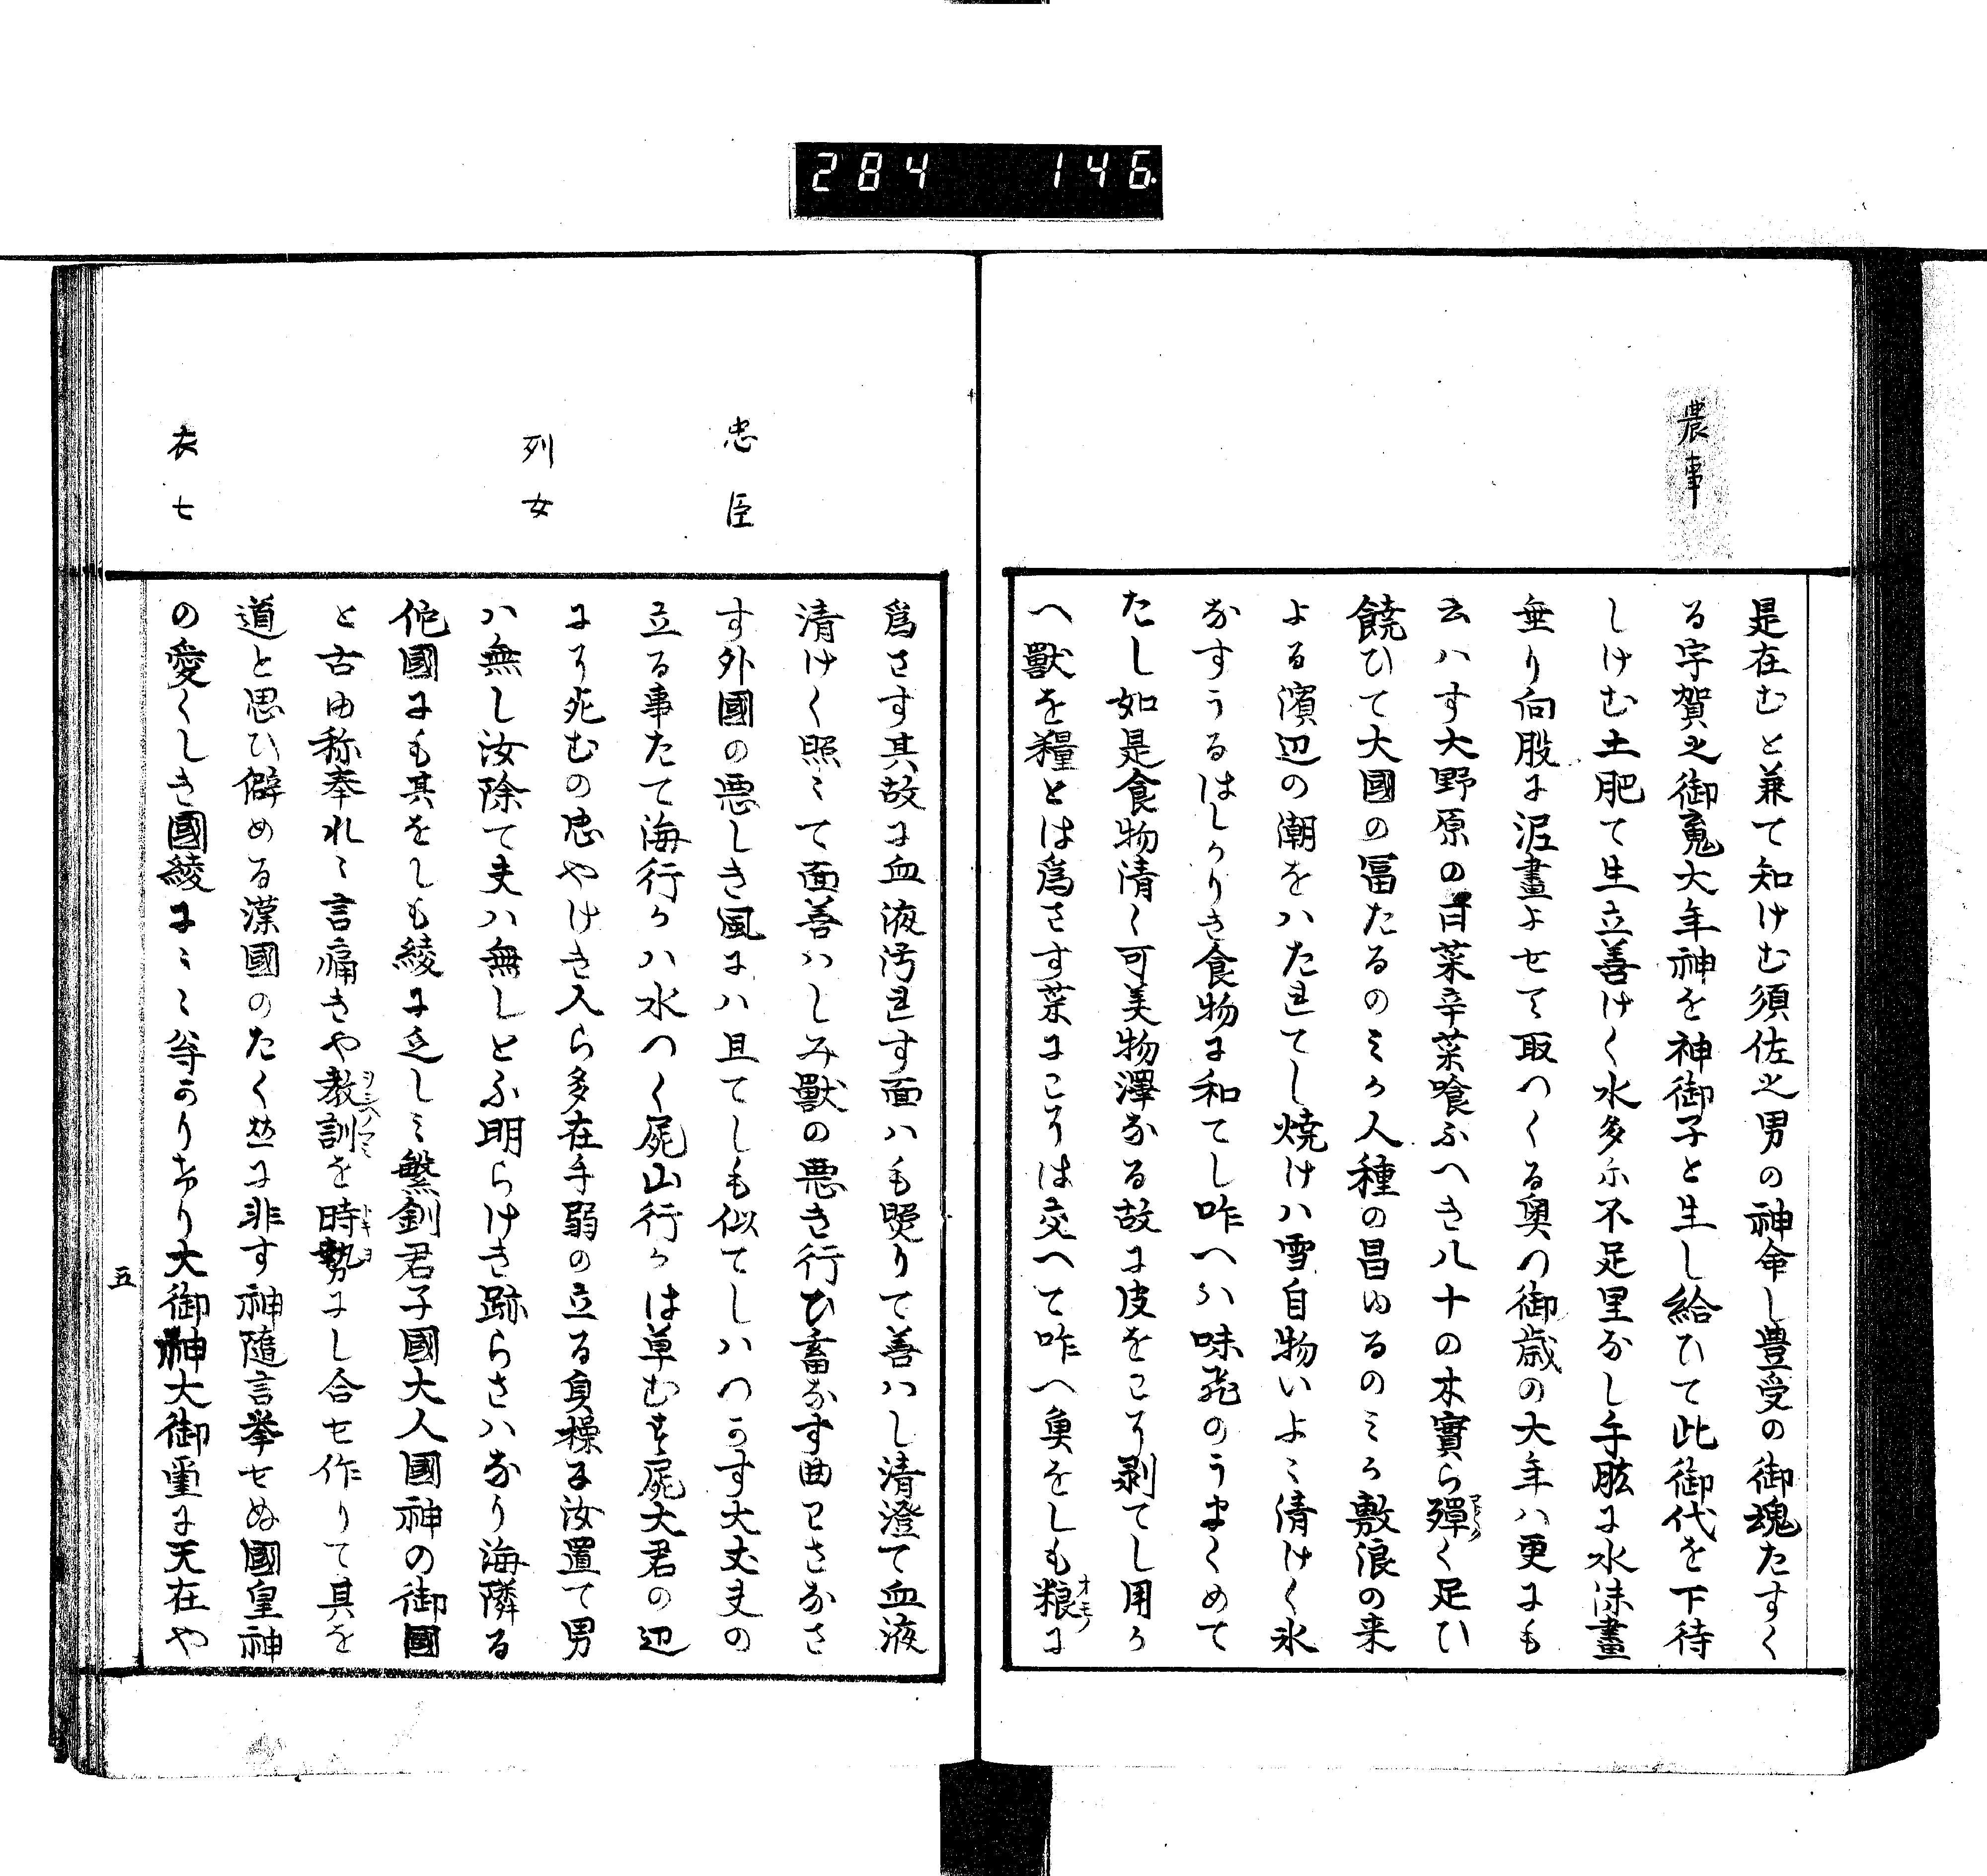 284 146
農事
是在むと兼て知けむ須佐之男の神命し豊受の御魂たすく
る宇賀之御䰟大年神を神御子と生し給ひて此御代を下待
しけむ土肥て生立善けく水多尓不足里なし手肱に水沫畫
垂り向股に泥畫よせて取つくる奥つ御歳の大年ハ更にも
云ハす大野原の甘菜辛菜喰ふへき八十の木實ら殫く足ひ
饒ひて大國の冨たるのミか人種の昌ゆるのミか敷浪の来
よる濱辺の潮をハたれてし焼けハ雪自物いよゝ清けく氷
なすうるはしかりき食物に和てし咋へハ味飛のうまくめて
たし如是食物清く可美物澤なる故に皮をこそ剥てし用う
へ獸を糧とは爲さす菜にこそは交へて咋へ魚をしも粮に
忠臣
列女
衣七
爲さす其故に血液汚れす面ハも照りて善ハし清澄て血液
清けく照ミて面善ハしみ獸の悪き行ひ畜なす曲わさなさ
す外國の悪しき風にハ且てしも似てしハつかす大丈夫の
立る事たて海行かハ水つく屍山行かは草むす屍大君の辺
にそ死むの忠やけき人ら多在手弱の立る貞操に汝置て男
ハ無し汝除て夫ハ無しとふ明らけき跡らさハなり海隣る
佗國にも其をしも綾に乏しミ繋釧君子國大人國神の御國
と古ゆ称奉れゝ言痛きや教訓を時勢にし合せ作りて其を
道と思ひ僻める漢國のたくひに非す神隨言挙せぬ國皇神
の愛くしき國綾にミミ皃かりけり大御神大御霊に天在や
ヲシヘノマミ
トキヨ
オモノ
五